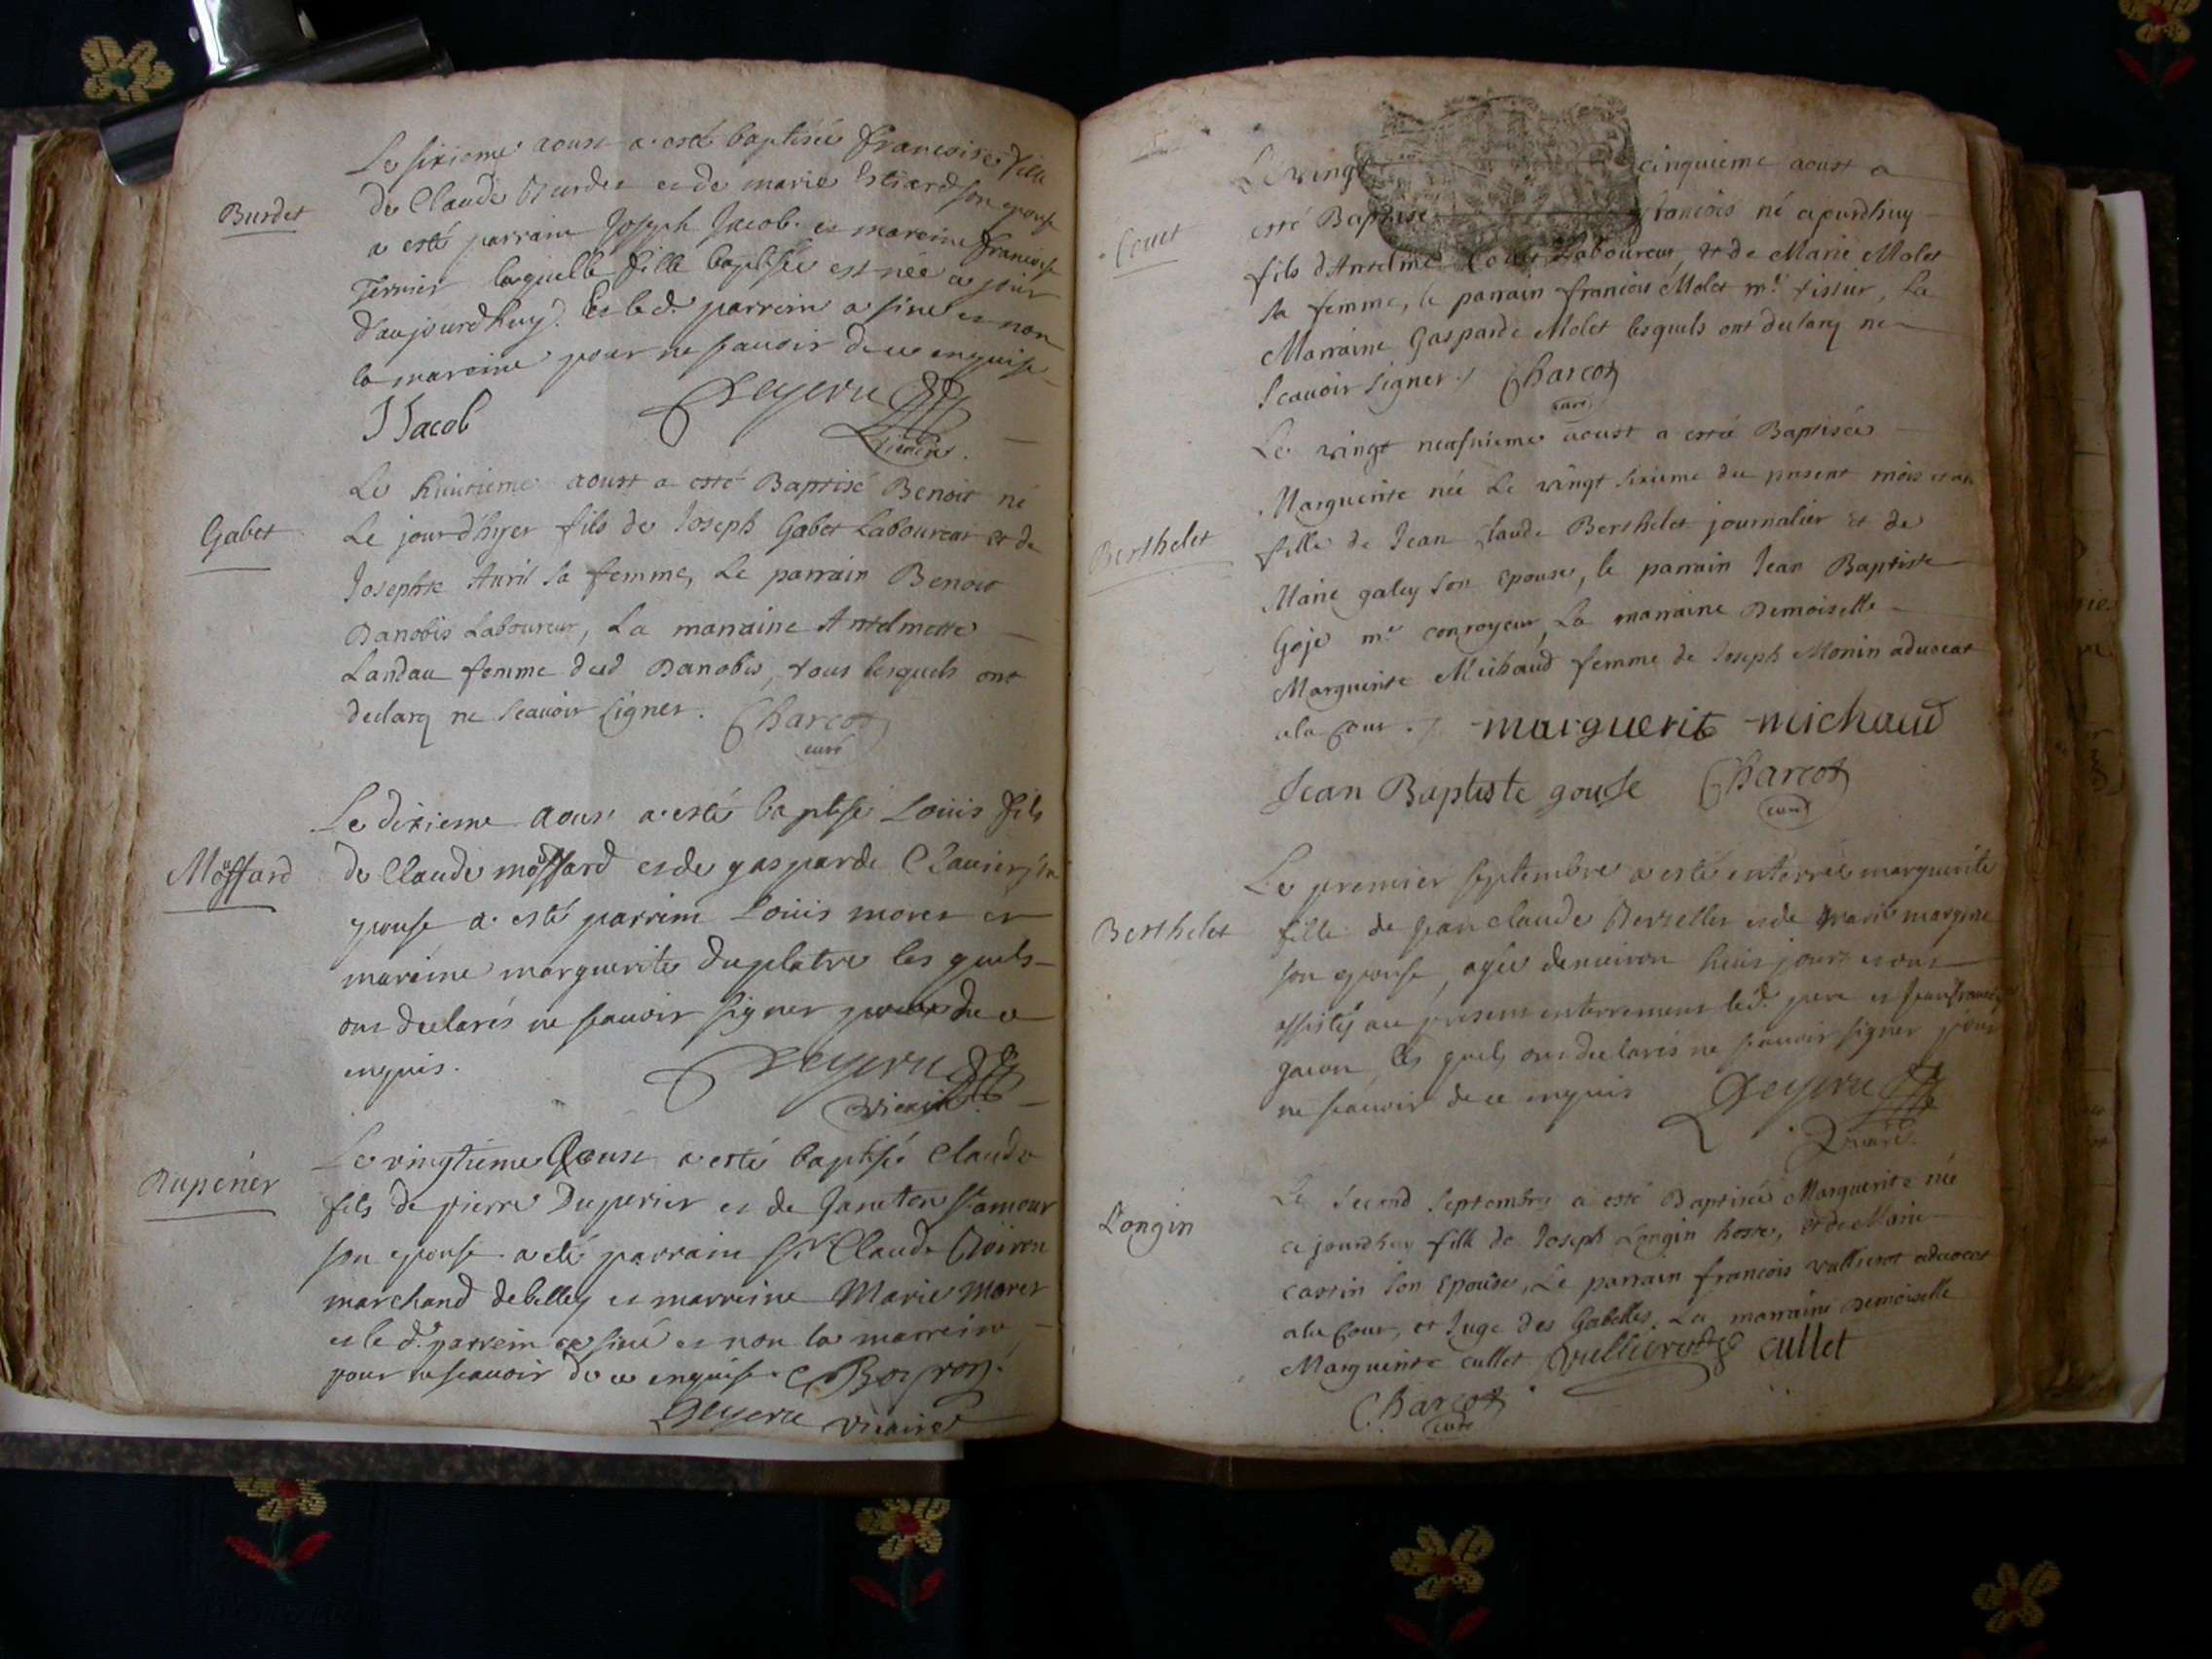 Burdet
Le sixieme aoust a esté baptisée francoise fille
de Claude Burdet et de marie Estiard son epouse
a esté parrain Joseph Jacob et mareine francoise
Ternier laquelle fille baptisée est née ce jour
d'aujourdhuy. Et led. parrein a siné et non
la mareine pour ne scauoir de ce enquise
J Jacob
Gabet
Le huitieme aoust a esté Baptisé Benoit né
Le jourd'hyer fils de Joseph Gabet Laboureur et de
Josephte Auril sa femme, Le parrain Benoit
Danobis Laboureur, La marraine Antelmette
Landau femme dud Danobis, tous lesquels ont
declarq ne scauoir signer. Charcot
curé
Moffard
Le dixieme aoust a esté baptisé Louis fils
de Claude moffard et de gasparde Claurier sa
epouse a esté parrein Louis moret et
mareine marguerite duplatre les quels
ont declarés ne scauoir signer de ce
enquis.
vicaire
Duperier
Le vingtieme Aoust a esté baptisé Claude
fils de pierre Duperier et de St amour
son epouse a eté parrain Sr Claude Boiron
marchand de belley et marreine Marie Moret
et le d. parrein a siné et non la marreine
pour ne scauoir de ce enquise. C Boyron.
vicaire
Couet
Le vingt cinquieme aoust a
esté Baptisé francois né ajourdhuy
fils d'Antelme Couet Laboureur, et de Marie Molet
sa femme, le parrain francois Molet m.e tissier, La
Marraine Gasparde Molet lesquels ont declarq ne
scauoir signer. Charcot
curé
Berthelet
Le vingt neufuieme aoust a esté Baptisée
Marguerite née Le vingt sixieme du present mois et an
fille de Jean Claude Berthelet journalier et de
Marie galey son epouse, le parrain Jean Baptiste
Goje m.e conroyeur, La marraine Demoiselle
Marguerite Michaud femme de Joseph Monin aduocat
a la Cour. marguerite michaud
Jean Baptiste gouse Charcot
curé
Berthelet
Le premier septembre a esté enterrée marguerite
fille de jean claude Berzellet et de marie
son epouse, agée denuiron huit jours et ont
assistés au present enterrement led. pere et
gacon les quels ont declarés ne scauoir signer pour
ne scauoir de ce enquis
Longin
Le second septembre a esté Baptisée Marguerite née
ce jourdhuy fille de Joseph Longin hoste, et de Marie
castin son Epouse, Le parrain francois vullierot aduocat
a la Cour, et Juge des Gabelles. La marraine Demoiselle
Marguerite cullet Vullierot cullet
Charcot
curé